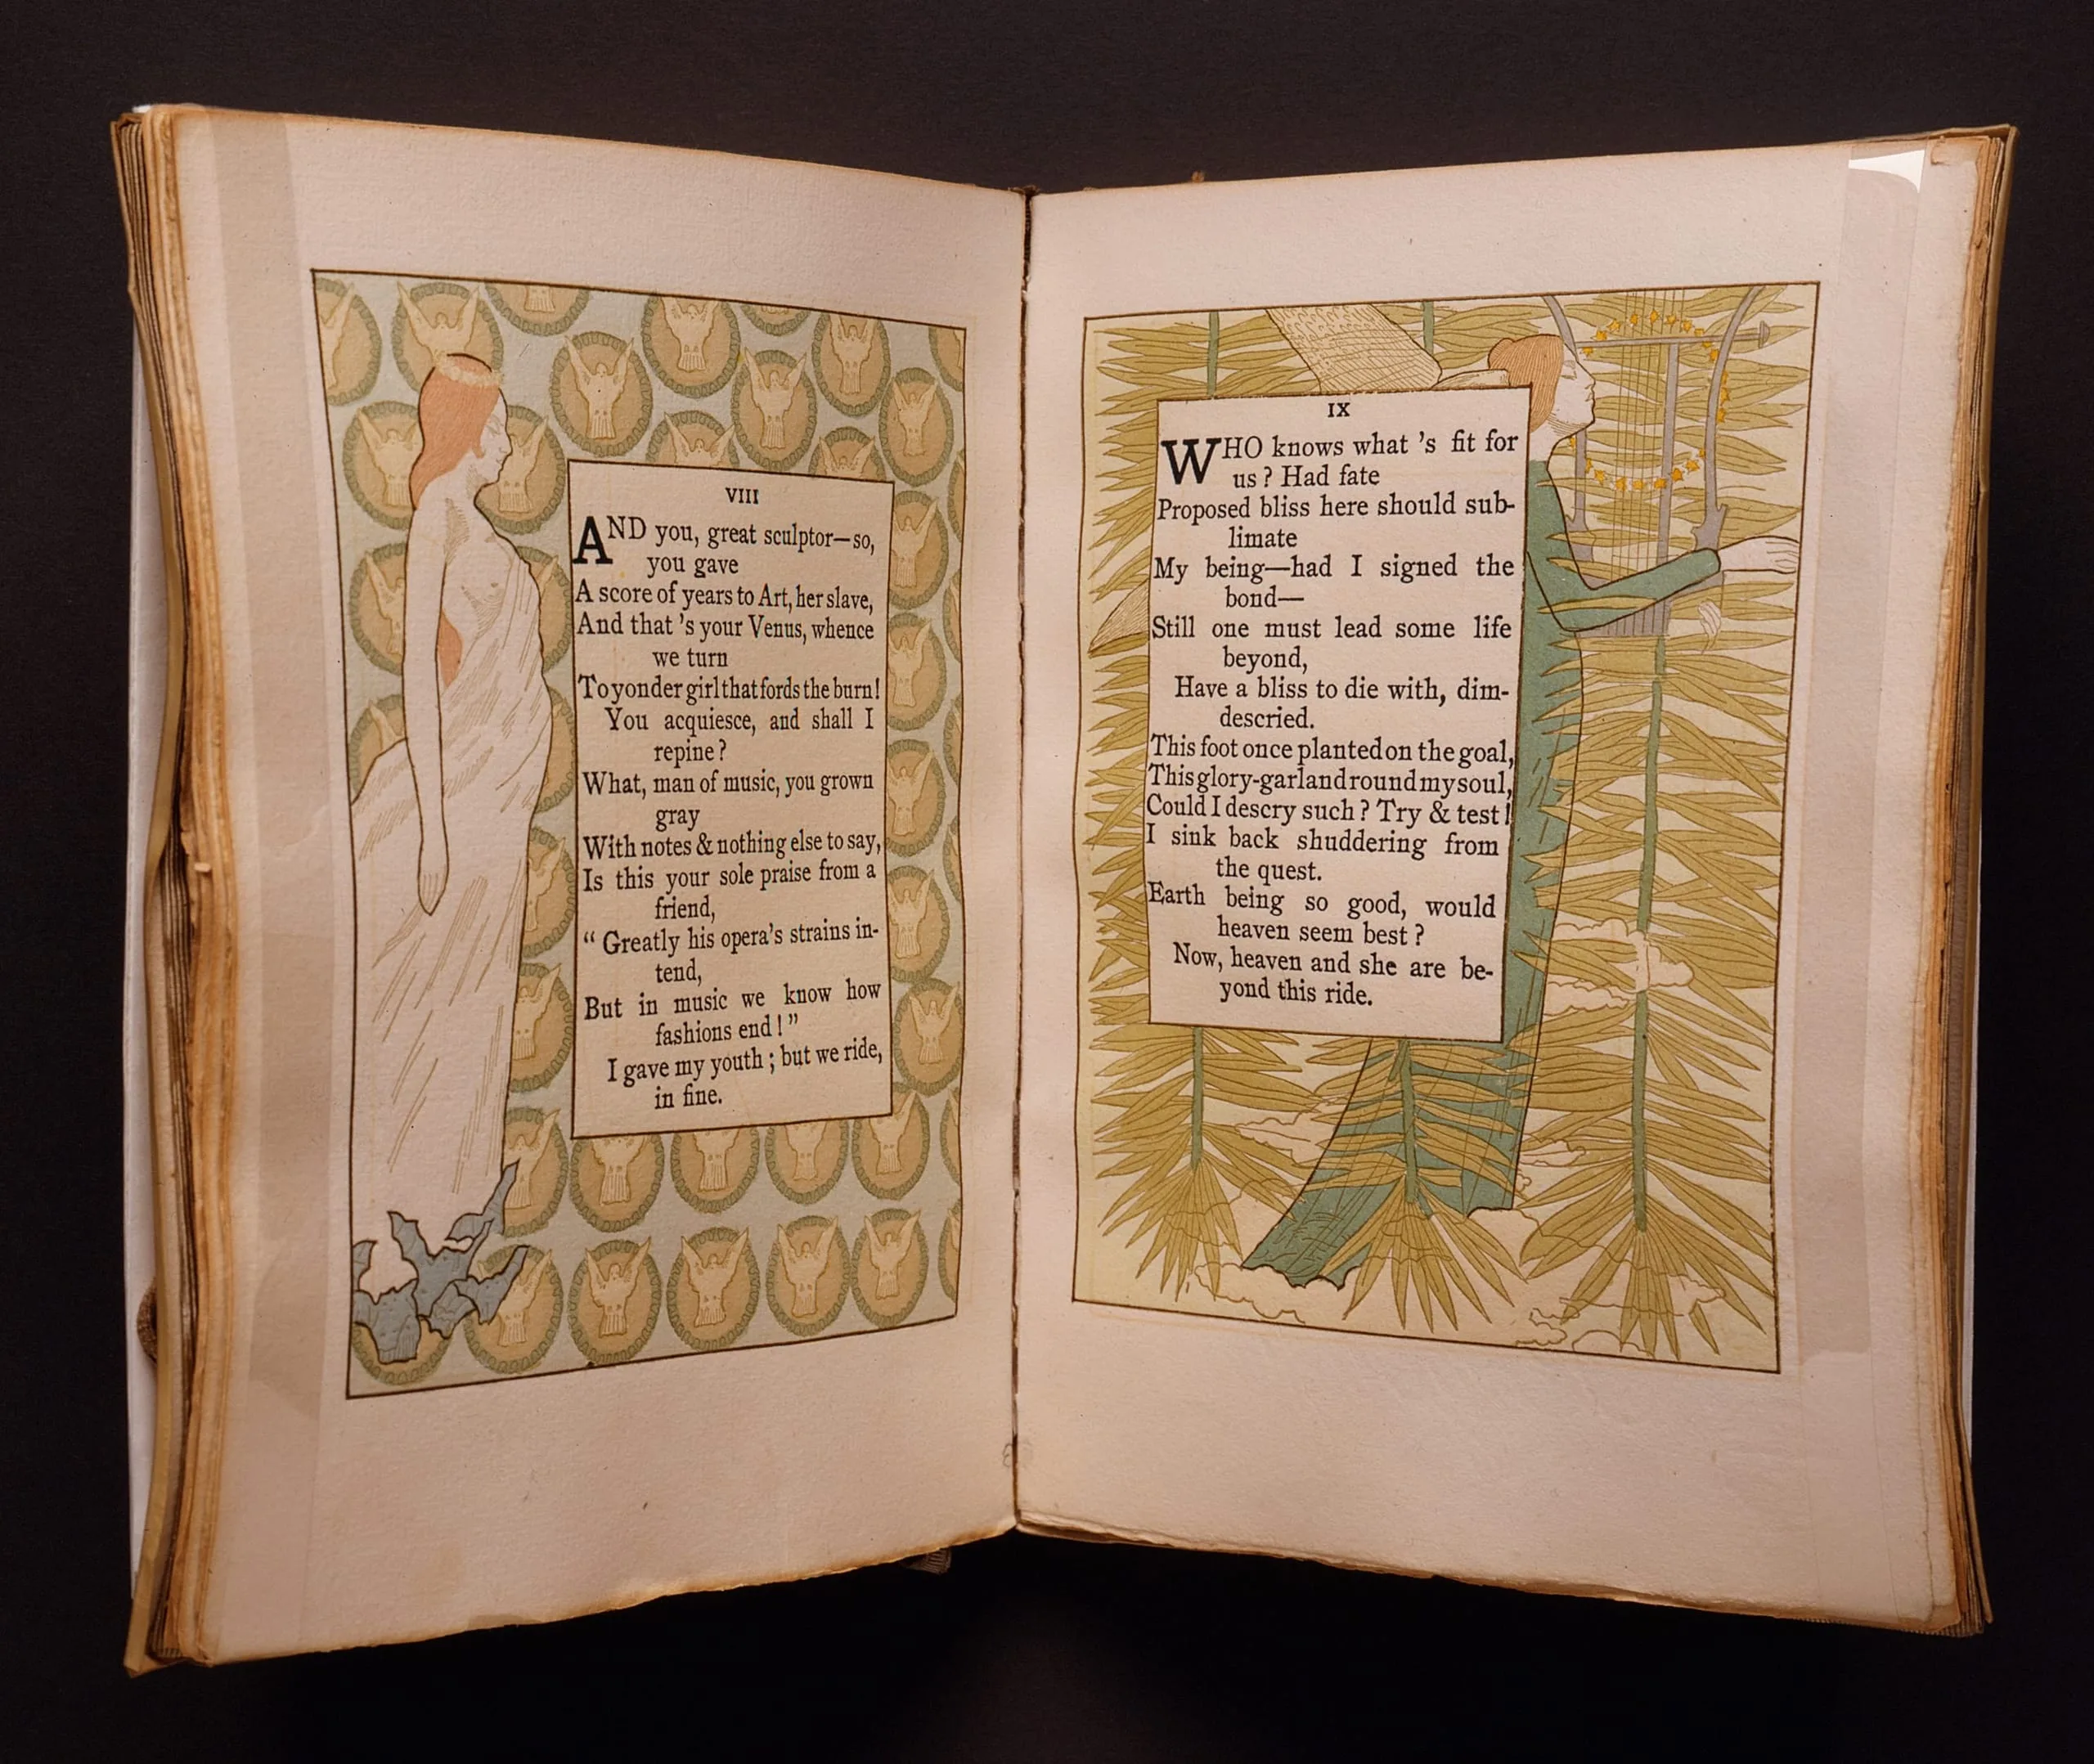 VIII
AND you, great sculptor—so,
you gave
A score of years to Art, her slave,
And that 's your Venus, whence
we turn
To yonder girl that fords the burn!
You acquiesce, and shall I
repine?
What, man of music, you grown
gray
With notes & nothing else to say,
Is this your sole praise from a
friend,
“ Greatly his opera's strains in-
tend,
But in music we know how
fashions end! ”
I gave my youth; but we ride,
in fine.
IX
WHO knows what 's fit for
us? Had fate
Proposed bliss here should sub-
limate
My being—had I signed the
bond—
Still one must lead some life
beyond,
Have a bliss to die with, dim-
descried.
This foot once planted on the goal,
This glory-garland round my soul,
Could I descry such? Try & test!
I sink back shuddering from
the quest.
Earth being so good, would
heaven seem best?
Now, heaven and she are be-
yond this ride.